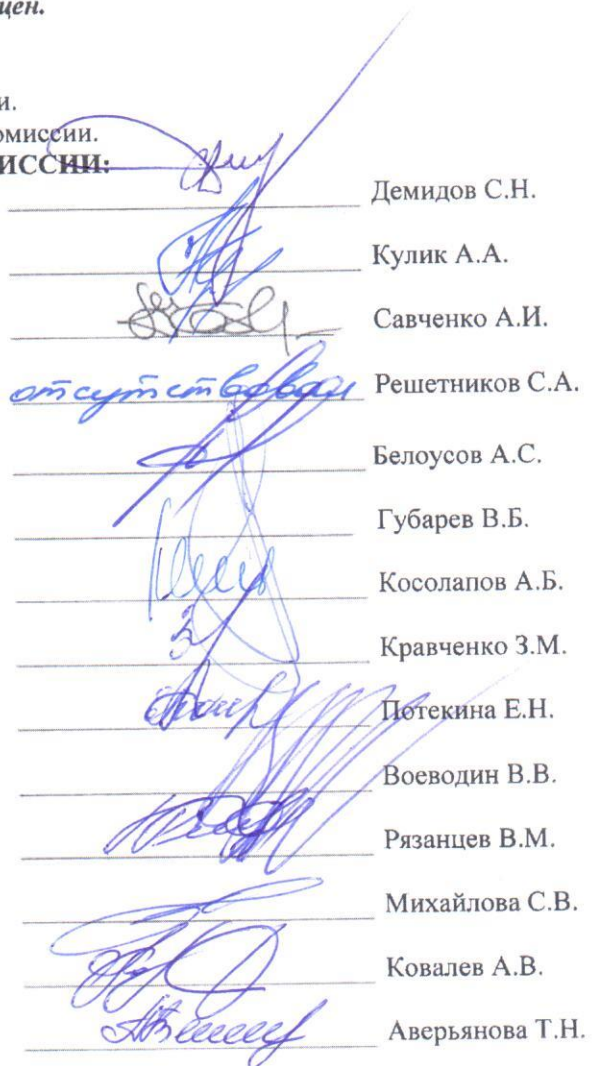 цен.
и.
омиссии.
ИССИИ:
Демидов С.Н.
Кулик А.А.
Савченко А.И.
отсутствовал Решетников С.А.
Белоусов А.С.
Губарев В.Б.
Косолапов А.Б.
Кравченко З.М.
Потекина Е.Н.
Воеводин В.В.
Рязанцев В.М.
Михайлова С.В.
Ковалев А.В.
Аверьянова Т.Н.